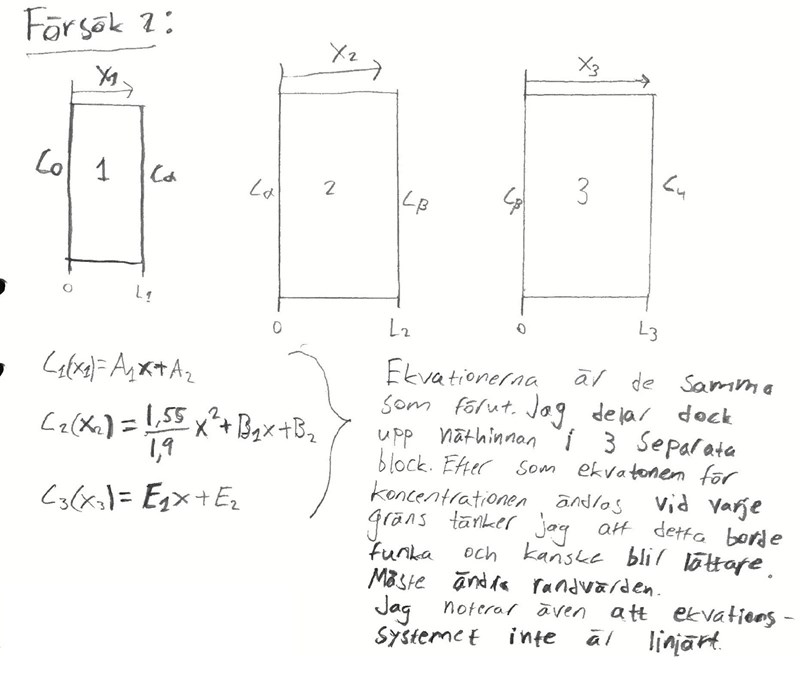 Försök 2:
X1 X2 X3
C0 1 Cα Cα 2 Cβ Cβ 3 C4
0 L1 0 L2 0 L3
C1(x1)=A1x+A2
C2(x2)=1,55/1,9 x²+B1x+B2
C3(x3)=E1x+E2
Ekvationerna är de samma
som förut. Jag delar dock
upp näthinnan i 3 separata
block. Efter som ekvatonen för
koncentrationen ändras vid varje
gräns tänker jag att detta borde
funka och kanske blir lättare.
Måste ändra randvärden.
Jag noterar även att ekvations-
systemet inte är linjärt.